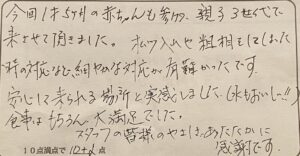 今回1才5ヶ月の赤ちゃんも参加、親子3世代で
来させて頂きました。オムツ入れや粗相をしてしまった
時の対応など、細やかな対応が有難かったです。
安心して来られる場所と実感しました(水もおいしい!!)
食事はもちろん大満足でした。
スタッフの皆様のやさしさ、あたたかさに
感謝です。
10点満点で 12 点